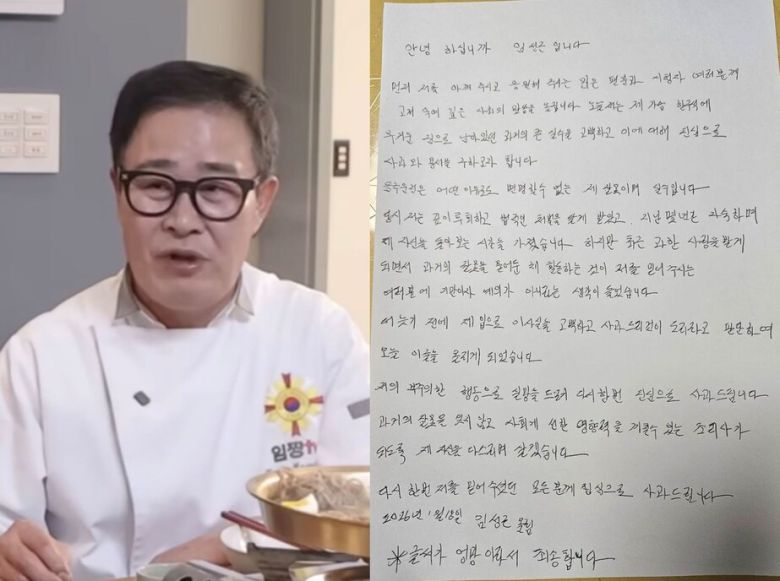 임짱TV
안녕 하십니까 임성근 입니다
먼저 저를 아껴 주시고 응원해 주시는 많은 팬분과 시청자 여러분께
고개 숙여 깊은 사죄의 말씀을 올립니다 오늘 저는 제 가슴 한구석에
무거운 짐으로 남아있던 과거의 큰 실수를 고백하고 이에 대해 진심으로
사과와 용서를 구하고자 합니다
음주운전은 어떤 이유로도 변명할수 없는 제 잘못이며 실수입니다
당시 저는 깊이 뉘우치고 법적인 처벌을 달게 받았고 지난 몇년간 자숙하며
제 자신을 돌아보는 시간을 가졌습니다 하지만 최근 과한 사랑을 받게
되면서 과거의 잘못을 묻어둔 채 활동하는 것이 저를 믿어 주시는
여러분에 기만이자 예의가 아니라는 생각이 들었습니다
더 늦기 전에 제 입으로 이사실을 고백하고 사과드리는것이 도리라고 판단하여
오늘 이글을 올리게 되었습니다
저의 부주의한 행동으로 실망을 드려 다시한번 진심으로 사과드립니다
과거의 잘못을 잊지 않고 사회에 선한 영향력을 끼칠수 있는 조리사가
되도록 제 자신을 다스리며 살겠습니다
다시 한번 저를 믿어 주셨던 모든분께 진심으로 사과드립니다
2026년 1월 임성근 올림
※글씨가 엉망 이라서 죄송합니다